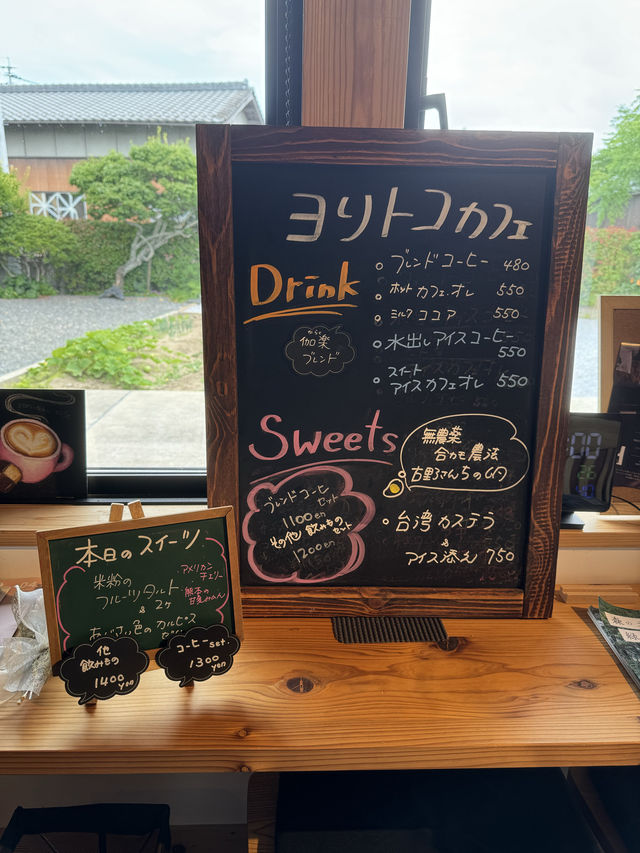 ヨリトコカフェ
Drink
からく
伽楽
ブレンド
ブレンドコーヒー 480
ホット カフェ.オレ 550
ミルク ココア 550
水出しアイスコーヒー
550
スイート
アイスカフェオレ 550
Sweets
無農薬
合カモ農法
ブレンドコーヒー
セット
1100en
その他 飲みもの
セット
1200en
台湾カステラ
&
アイス添え 750
本日のスイーツ
米粉の
フルーツタルト
アメリカン
チェリー
& 2ケ
熊本の
甘夏みかん
あじさい色のカルピス
他
飲みもの
1400
yen
コーヒーset
1300
yen